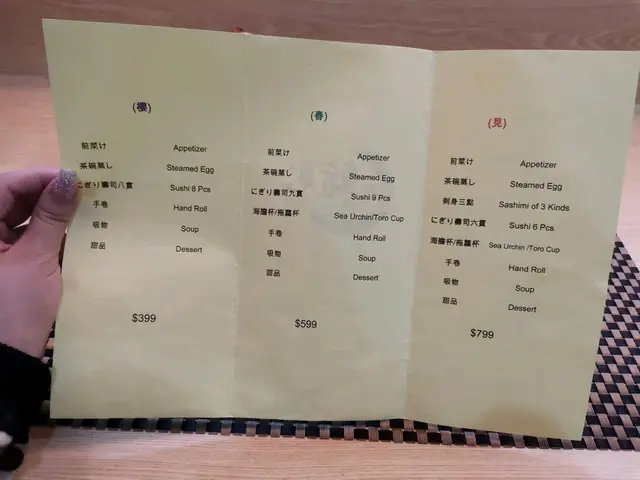 (櫻)
前菜け Appetizer
茶碗蒸し Steamed Egg
にぎり壽司八貫 Sushi 8 Pcs
手卷 Hand Roll
吸物 Soup
甜品 Dessert
$399
(春)
前菜け Appetizer
茶碗蒸し Steamed Egg
にぎり壽司九貫 Sushi 9 Pcs
海膽杯/拖羅杯 Sea Urchin/Toro Cup
手卷 Hand Roll
吸物 Soup
甜品 Dessert
$599
(見)
前菜け Appetizer
茶碗蒸し Steamed Egg
刺身三點 Sashimi of 3 Kinds
にぎり壽司六貫 Sushi 6 Pcs
海膽杯/拖羅杯 Sea Urchin /Toro Cup
手卷 Hand Roll
吸物 Soup
甜品 Dessert
$799